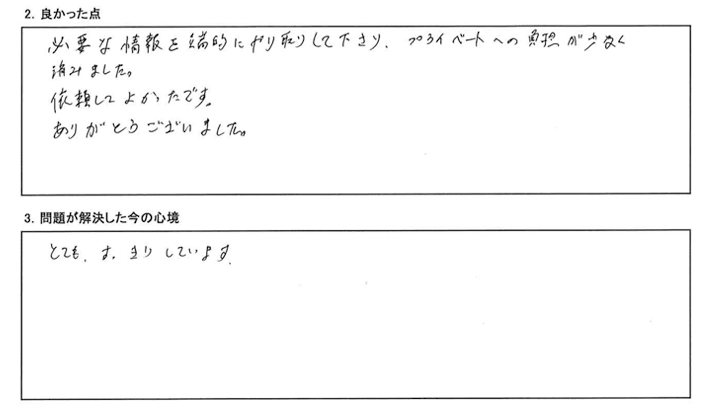 2. 良かった点
必要な情報を端的にやり取りして下さり、プライベートへの負担が少なく
済みました。
依頼してよかったです。
ありがとうございました。
3. 問題が解決した今の心境
とても、すっきりしています。